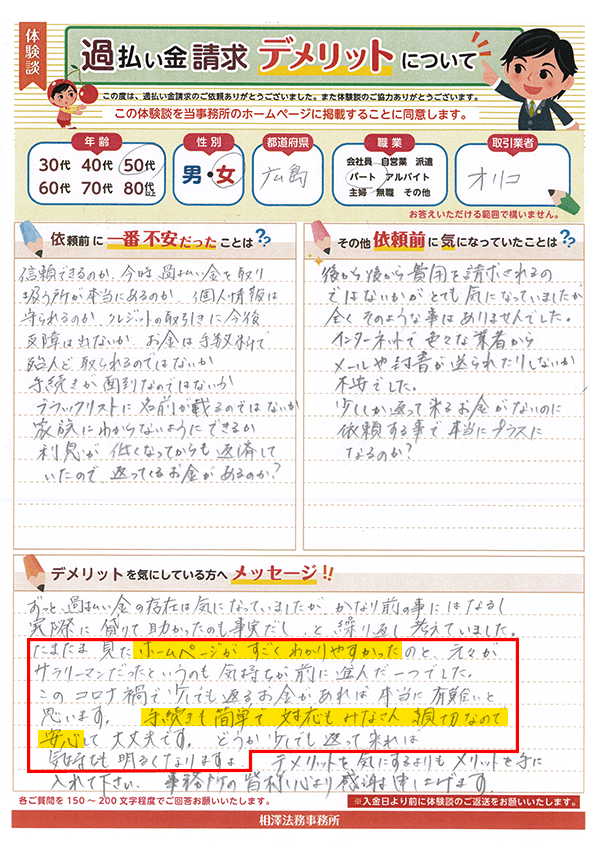 体験談
過払い金請求 デメリットについて
この度は、過払い金請求のご依頼ありがとうございました。また体験談のご協力ありがとうございます。
この体験談を当事務所のホームページに掲載することに同意します。
年齢
30代 40代 50代
60代 70代 80代以上
性別
男・女
都道府県
広島
職業
会社員 自営業 派遣
パート アルバイト
主婦 無職 その他
取引業者
オリコ
お答えいただける範囲で構いません。
依頼前に一番不安だったことは??
信頼できるのか、今時過払い金を取り
扱う所が本当にあるのか、個人情報は
守られるのか、クレジットの取引に今後
支障は出ないか、お金は手数料で
殆んど取られるのではないか
手続きが面倒なのではないか
ブラックリストに名前が載るのではないか
家族にわからないようにできるか
利息が低くなってからも返済して
いたので返ってくるお金があるのか?
その他依頼前に気になっていたことは??
後から後から費用を請求されるの
ではないかがとても気になっていましたが
全くそのような事はありませんでした。
インターネットで色々な業者から
メールや封書が送られたりしないか
不安でした。
少ししか返って来るお金がないのに
依頼する事で本当にプラスに
なるのか?
デメリットを気にしている方へメッセージ!!
ずっと、過払い金の存在は気になっていましたが、かなり前の事にはなるし
実際に借りて助かったのも事実だし、と繰り返し考えていました。
たまたま見たホームページがすごくわかりやすかったのと、元々が
サラリーマンだったというのも気持ちが前に進んだ一つでした。
このコロナ禍で少しでも返るお金があれば本当に有難いと
思います。 手続きも簡単で対応もみなさん親切なので
安心して大丈夫です。 どうか少しでも返って来れば
気持ちも明るくなりますよ。 デメリットを気にするよりもメリットを手に
入れて下さい。 事務所の皆様に心より感謝申し上げます。
各ご質問を150〜200文字程度でご回答お願いいたします。
※入金日より前に体験談のご返送をお願いいたします。
相澤法務事務所